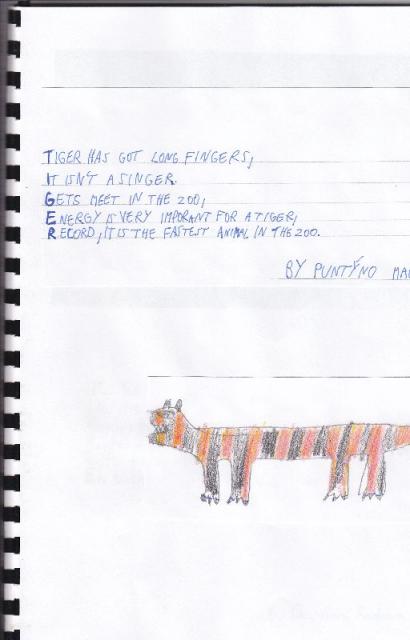 TIGER HAS GOT LONG FINGERS,
IT ISN'T A SINGER.
GETS MEET IN THE ZOO,
ENERGY IS VERY IMPORANT FOR A TIGER,
RECORD, IT IS THE FASTEST ANIMAL IN THE ZOO.
BY PUNTÝNO